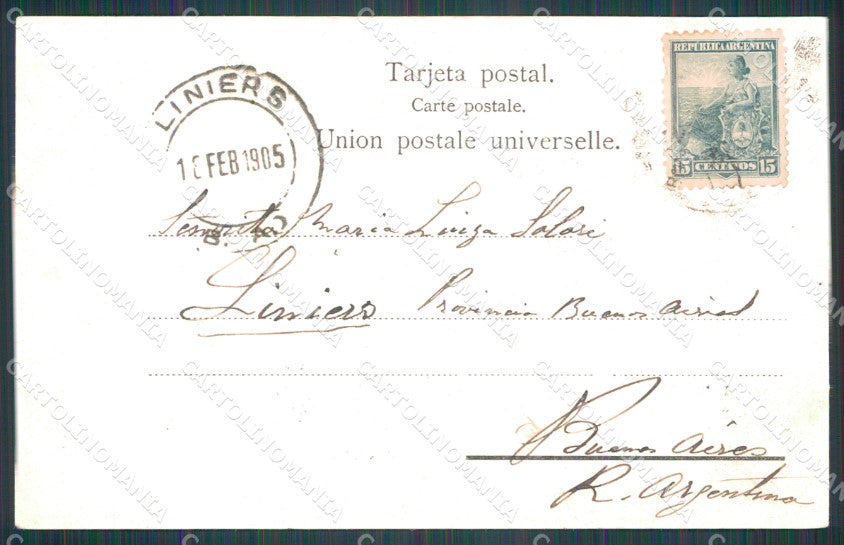 Tarjeta postal.
Carte postale.
Union postale universelle.
REPUBLICA ARGENTINA
15 CENTAVOS 15
LINIERS
FEB 1905
B. A.
Maria Luiza Solari
Liniers Provincia Buenos Aires
Buenos Aires
R. Argentina
CARTOLINOMANIA